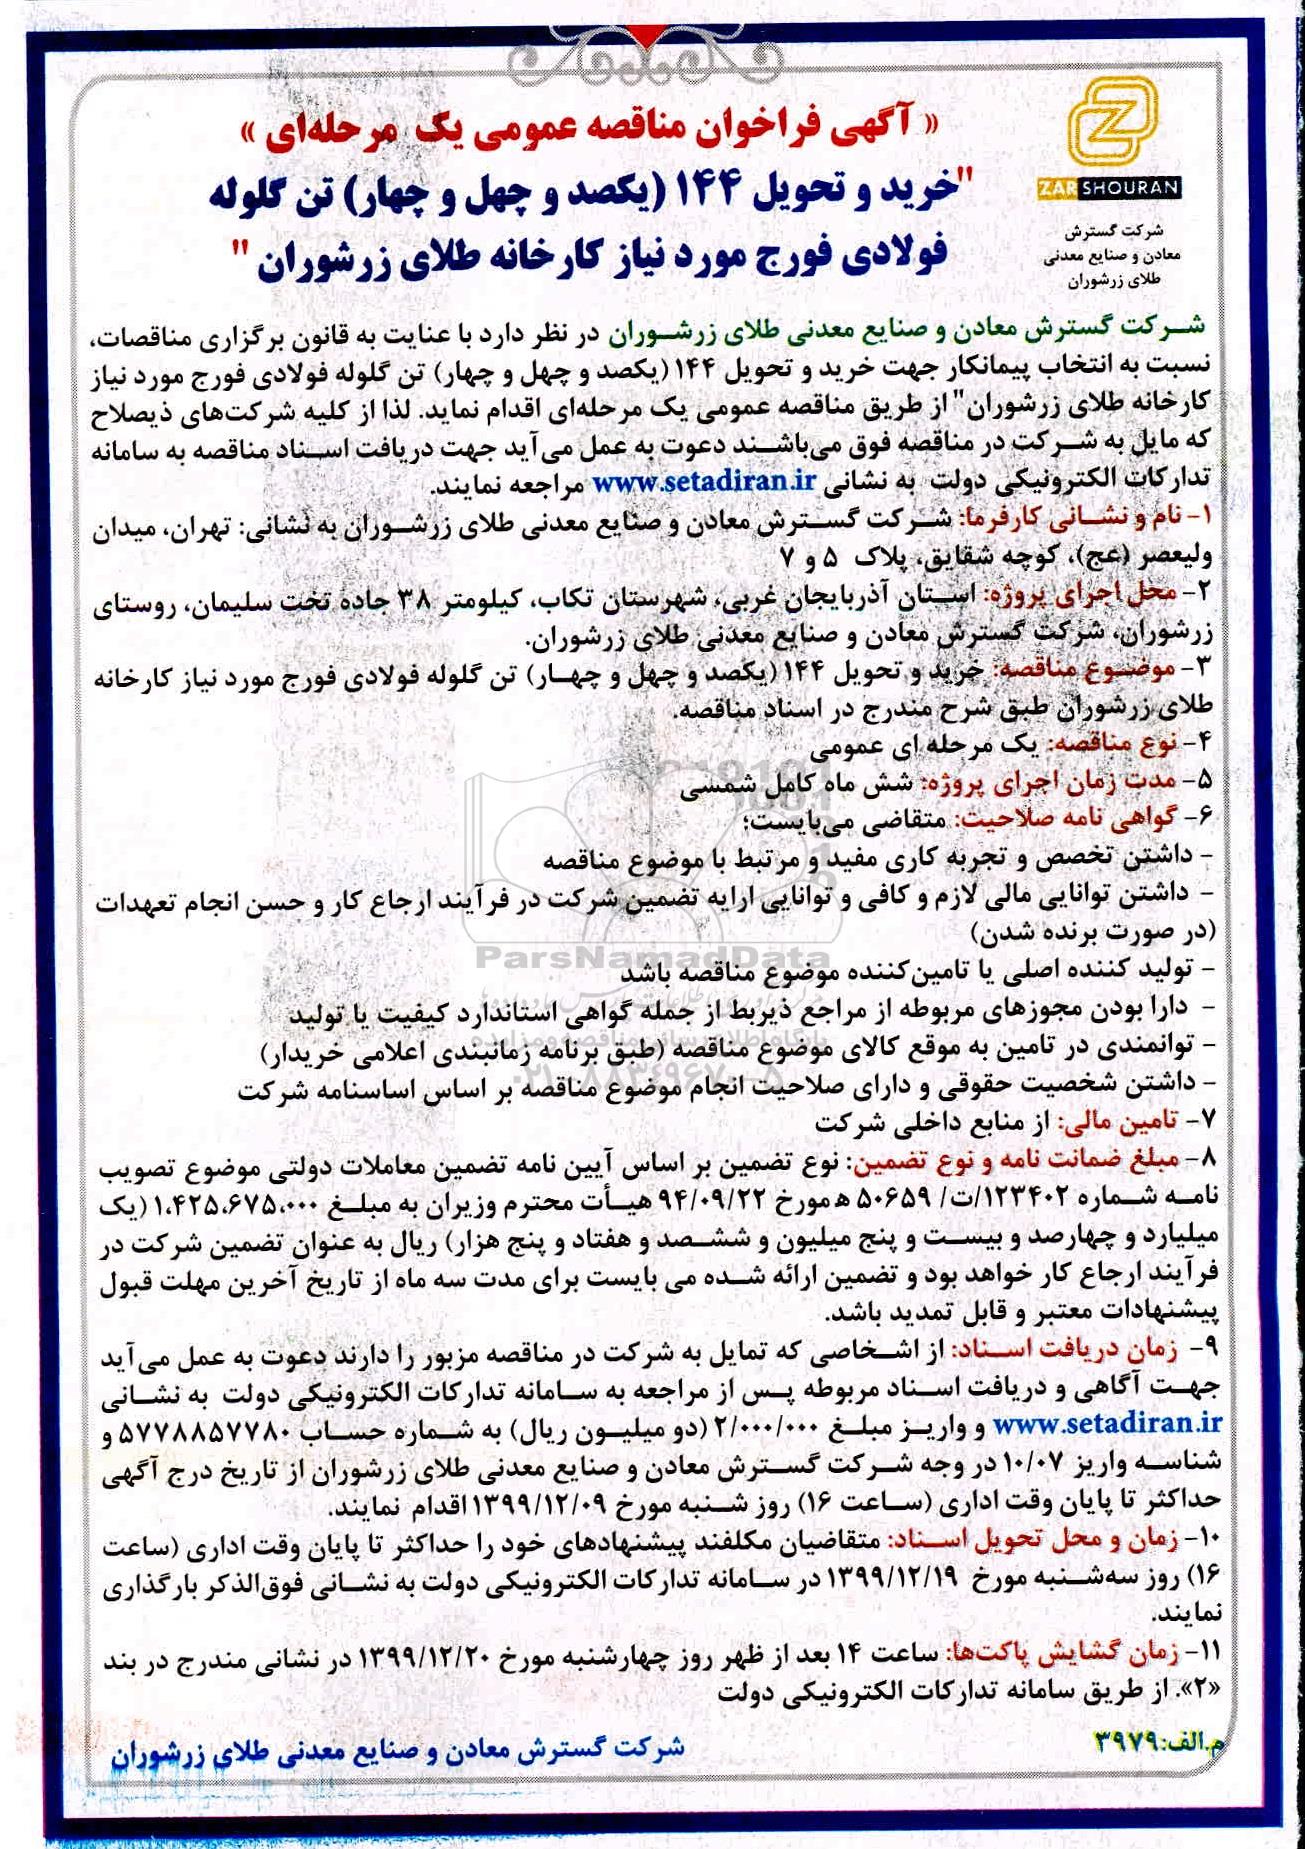 « آگهی فراخوان مناقصه عمومی یک مرحله‌ای »
"خرید و تحویل ۱۴۴ (یکصد و چهل و چهار) تن گلوله
فولادی فورج مورد نیاز کارخانه طلای زرشوران "
ZARSHOURAN
شرکت گسترش
معادن و صنایع معدنی
طلای زرشوران
شرکت گسترش معادن و صنایع معدنی طلای زرشوران در نظر دارد با عنایت به قانون برگزاری مناقصات،
نسبت به انتخاب پیمانکار جهت خرید و تحویل ۱۴۴ (یکصد و چهل و چهار) تن گلوله فولادی فورج مورد نیاز
کارخانه طلای زرشوران" از طریق مناقصه عمومی یک مرحله‌ای اقدام نماید. لذا از کلیه شرکت‌های ذیصلاح
که مایل به شرکت در مناقصه فوق می‌باشند دعوت به عمل می‌آید جهت دریافت اسناد مناقصه به سامانه
تدارکات الکترونیکی دولت به نشانی www.setadiran.ir مراجعه نمایند.
۱- نام و نشانی کارفرما: شرکت گسترش معادن و صنایع معدنی طلای زرشوران به نشانی: تهران، میدان
ولیعصر (عج)، کوچه شقایق، پلاک ۵ و ۷
۲- محل اجرای پروژه: استان آذربایجان غربی، شهرستان تکاب، کیلومتر ۳۸ جاده تخت سلیمان، روستای
زرشوران، شرکت گسترش معادن و صنایع معدنی طلای زرشوران.
۳- موضوع مناقصه: خرید و تحویل ۱۴۴ (یکصد و چهل و چهار) تن گلوله فولادی فورج مورد نیاز کارخانه
طلای زرشوران طبق شرح مندرج در اسناد مناقصه.
۴- نوع مناقصه: یک مرحله ای عمومی
۵- مدت زمان اجرای پروژه: شش ماه کامل شمسی
۶- گواهی نامه صلاحیت: متقاضی می‌بایست؛
- داشتن تخصص و تجربه کاری مفید و مرتبط با موضوع مناقصه
- داشتن توانایی مالی لازم و کافی و توانایی ارایه تضمین شرکت در فرآیند ارجاع کار و حسن انجام تعهدات
(در صورت برنده شدن)
ParsNamadData
- تولید کننده اصلی یا تامین‌کننده موضوع مناقصه باشد
- دارا بودن مجوزهای مربوطه از مراجع ذیربط از جمله گواهی استاندارد کیفیت یا تولید
پایگاه اطلاع رسانی مناقصه و مزایده
- توانمندی در تامین به موقع کالای موضوع مناقصه (طبق برنامه زمانبندی اعلامی خریدار)
۰۲۱-۸۸۳۴۹۶۷۰-۵
- داشتن شخصیت حقوقی و دارای صلاحیت انجام موضوع مناقصه بر اساس اساسنامه شرکت
۷- تامین مالی: از منابع داخلی شرکت
۸- مبلغ ضمانت نامه و نوع تضمین: نوع تضمین بر اساس آیین نامه تضمین معاملات دولتی موضوع تصویب
نامه شماره ۱۲۳۴۰۲/ت/ ۵۰۶۵۹ ه مورخ ۹۴/۰۹/۲۲ هیأت محترم وزیران به مبلغ ۱،۴۲۵،۶۷۵،۰۰۰ (یک
میلیارد و چهارصد و بیست و پنج میلیون و ششصد و هفتاد و پنج هزار) ریال به عنوان تضمین شرکت در
فرآیند ارجاع کار خواهد بود و تضمین ارائه شده می بایست برای مدت سه ماه از تاریخ آخرین مهلت قبول
پیشنهادات معتبر و قابل تمدید باشد.
۹- زمان دریافت اسناد: از اشخاصی که تمایل به شرکت در مناقصه مزبور را دارند دعوت به عمل می‌آید
جهت آگاهی و دریافت اسناد مربوطه پس از مراجعه به سامانه تدارکات الکترونیکی دولت به نشانی
www.setadiran.ir و واریز مبلغ ۲/۰۰۰/۰۰۰ (دو میلیون ریال) به شماره حساب ۵۷۷۸۸۵۷۷۸۰ و
شناسه واریز ۱۰/۰۷ در وجه شرکت گسترش معادن و صنایع معدنی طلای زرشوران از تاریخ درج آگهی
حداکثر تا پایان وقت اداری (ساعت ۱۶) روز شنبه مورخ ۱۳۹۹/۱۲/۰۹ اقدام نمایند.
۱۰- زمان و محل تحویل اسناد: متقاضیان مکلفند پیشنهادهای خود را حداکثر تا پایان وقت اداری (ساعت
۱۶) روز سه‌شنبه مورخ ۱۳۹۹/۱۲/۱۹ در سامانه تدارکات الکترونیکی دولت به نشانی فوق‌الذکر بارگذاری
نمایند.
۱۱- زمان گشایش پاکت‌ها: ساعت ۱۴ بعد از ظهر روز چهارشنبه مورخ ۱۳۹۹/۱۲/۲۰ در نشانی مندرج در بند
«۲». از طریق سامانه تدارکات الکترونیکی دولت
م.الف: ۳۹۷۹
شرکت گسترش معادن و صنایع معدنی طلای زرشوران